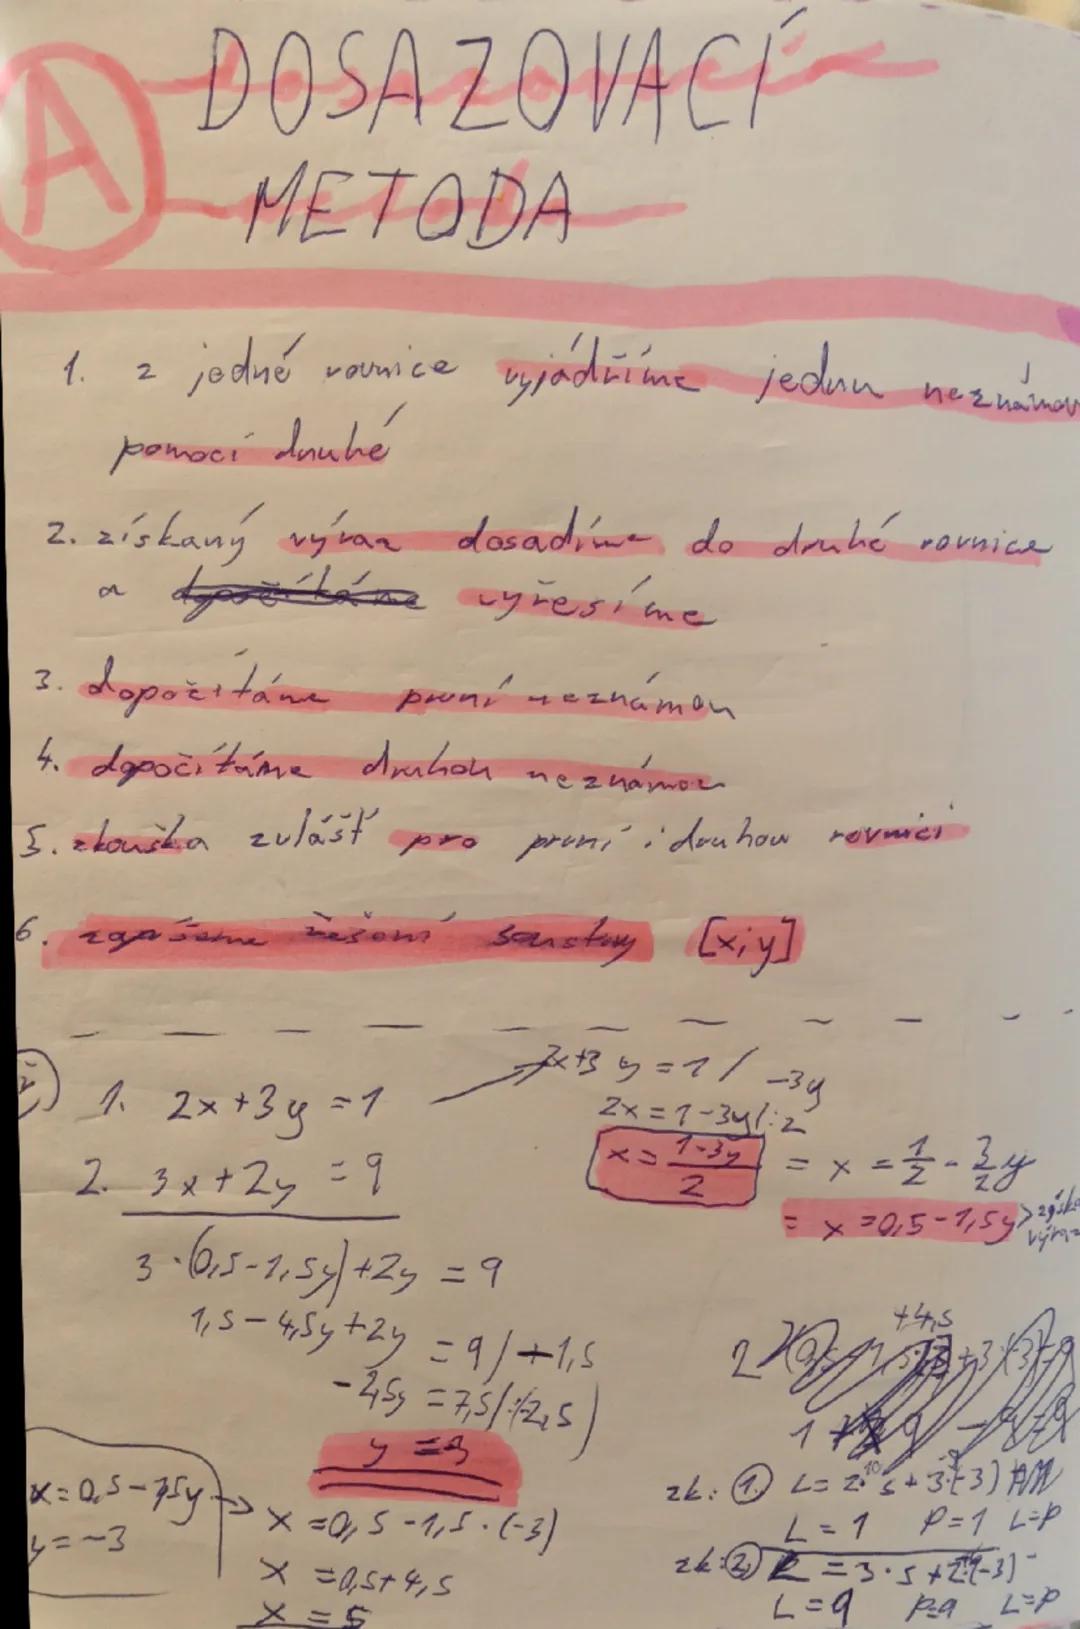 A
DOSAZOVACÍ
METODA
1. z jedné rovnice vyjádříme jednu neznámou
pomocí druhé
2. získaný výraz dosadíme do druhé rovnice
a vyřešíme
3. dopočítáme první neznámou
4. dopočítáme druhou neznámou
5. zkouška zvlášť pro první i druhou rovnici
6. zapíšeme řešení soustavy [x;y]
1. 2x+3y=1
2x+3y=1/-3y
2x=1-3y/:2
x=\frac{1-3y}{2} = x=\frac{1}{2}-\frac{3}{2}y
= x=0,5-1,5y >
2. 3x+2y=9
3·(0,5-1,5y)+2y=9
1,5-4,5y+2y=9/+1,5
-2,5y=7,5/:(-2,5)
y=3
x=0,5-1,5y
y=-3
x=0,5-1,5·(-3)
x=0,5+4,5
x=5
+4,5
zk: 1. L=2·5+3·(-3)
10 -9
L=1 P=1 L=P
zk: 2. L=3·5+2·(-3)
L=9 P=9 L=P